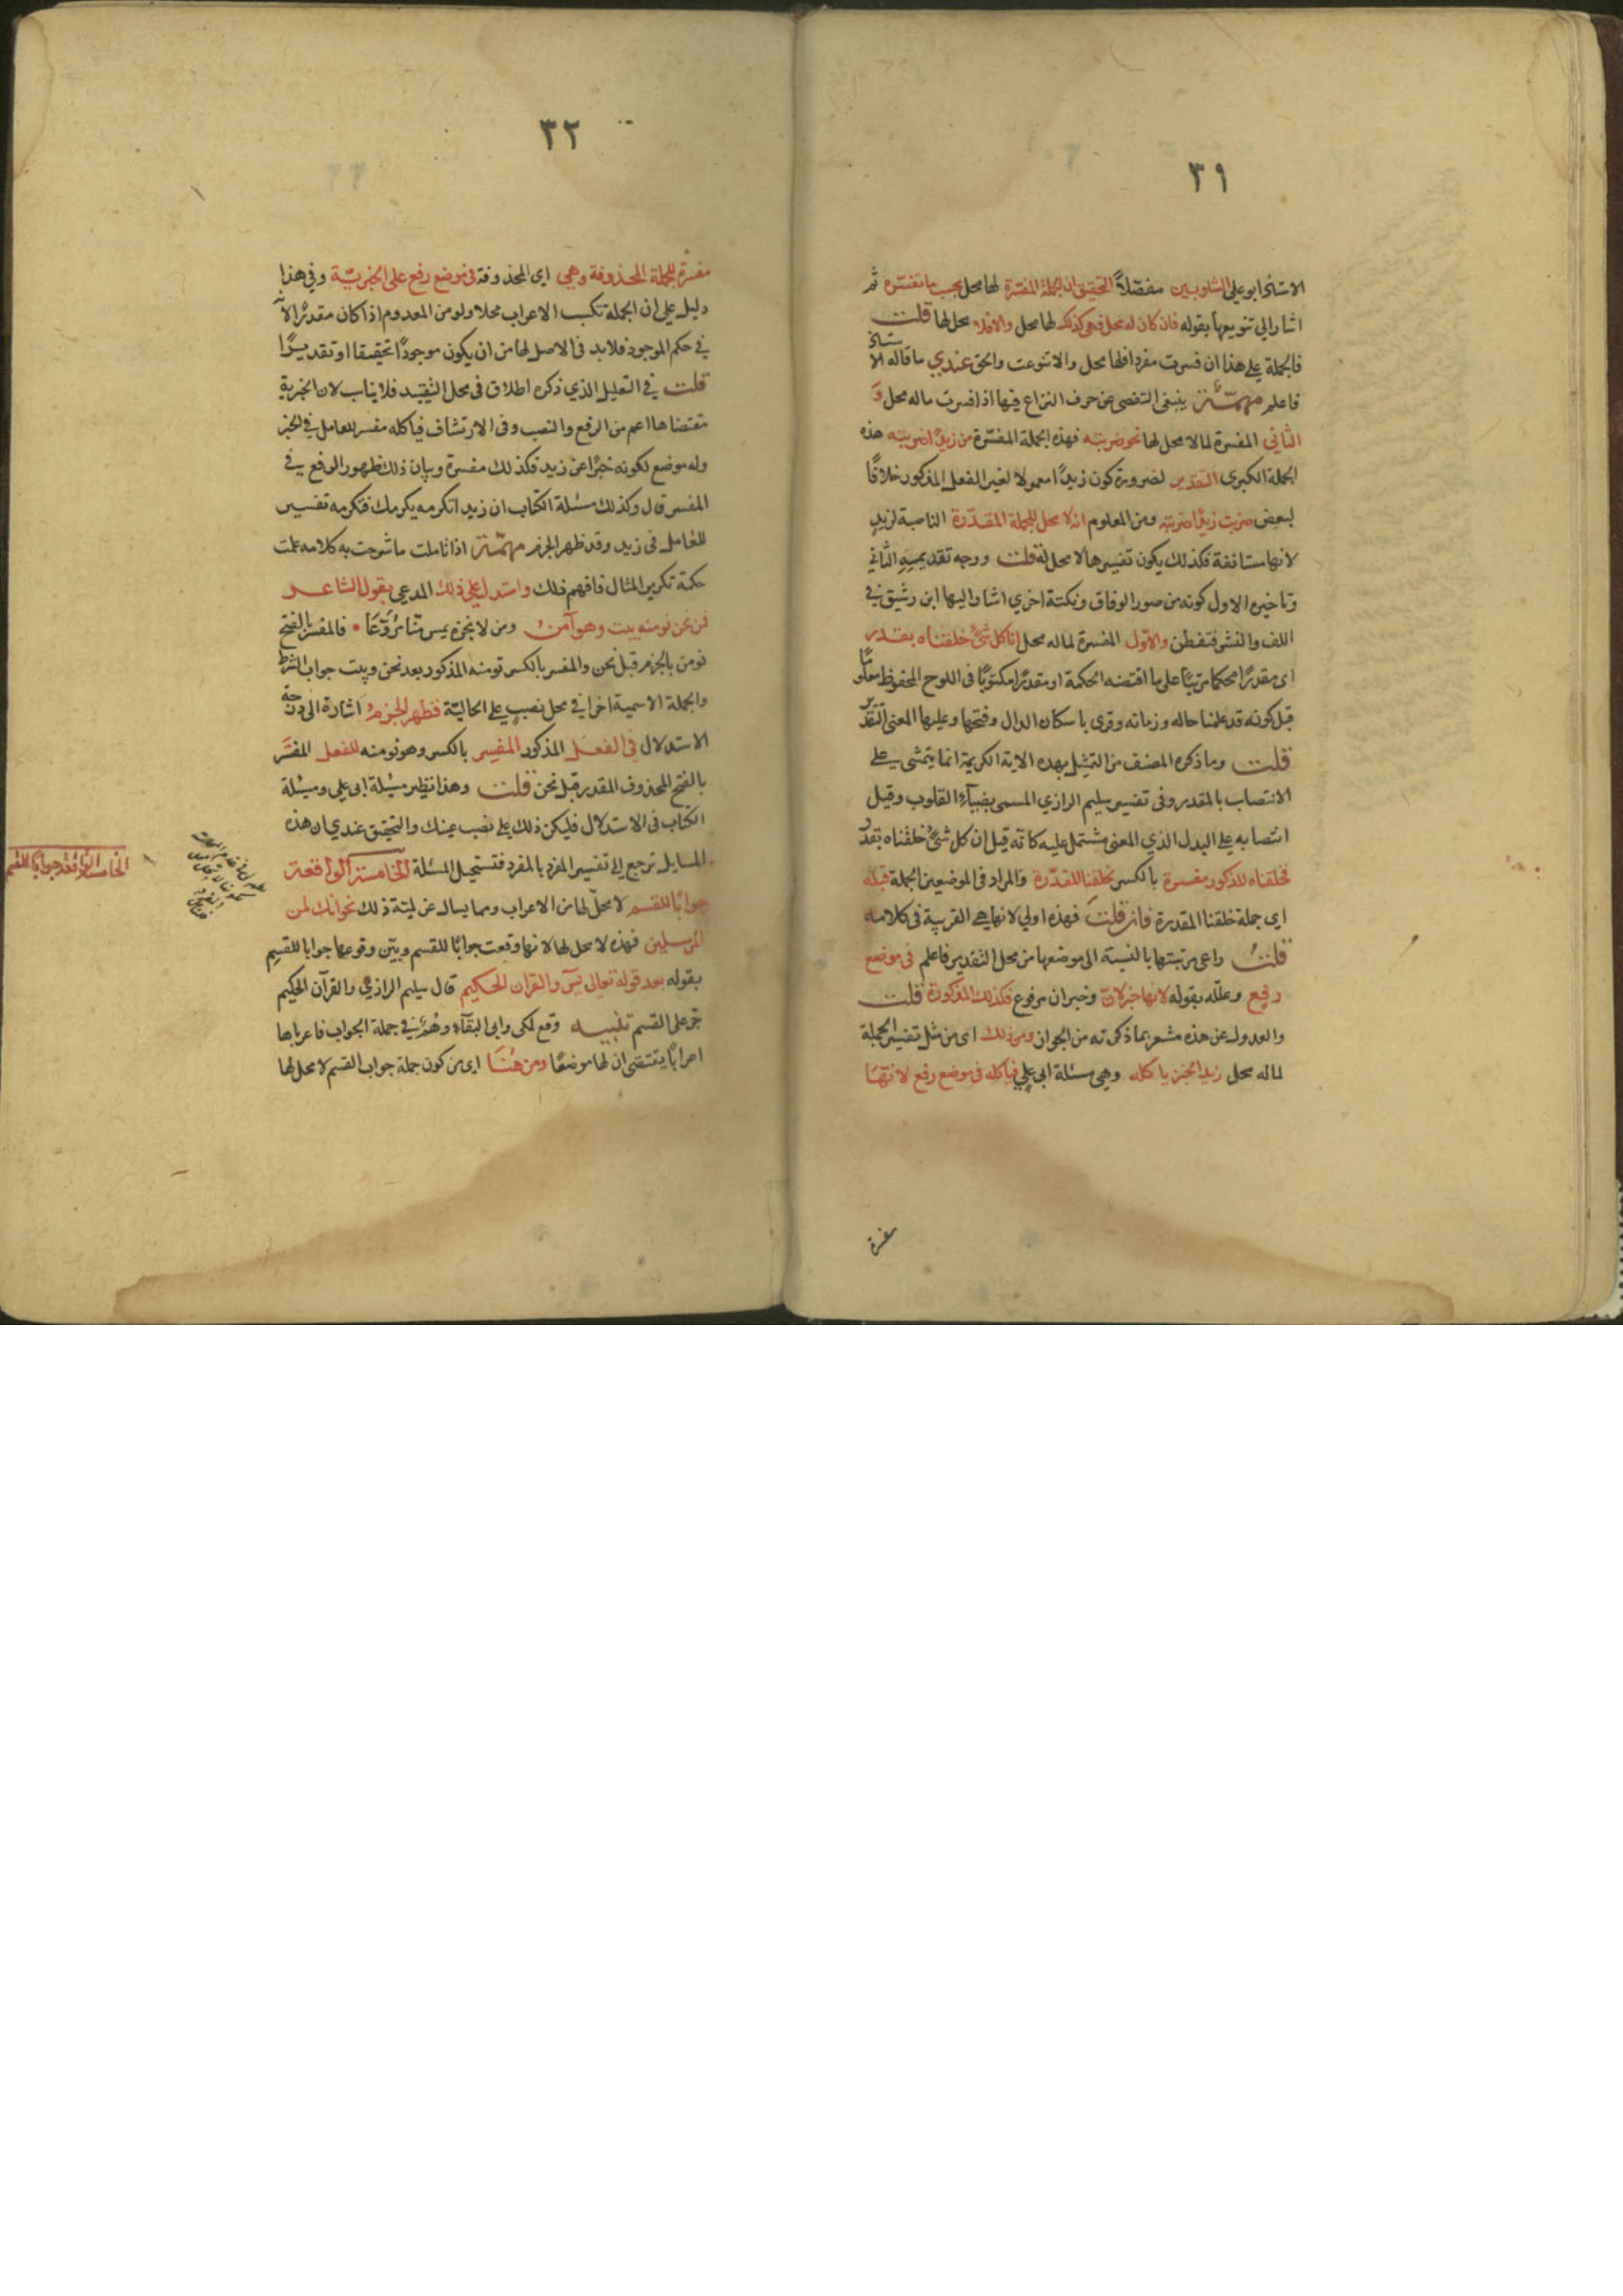 ٣١
الاستاذ ابو على الشلوبين مفصّلاً التحقيق ان الجملة المفسرة لها محل بحسب ما تفسره ثم
اشار الى تنويعها بقوله فان كان له محل فهى كذلك لها محل والا فلا محل لها قلت
فالجملة على هذا ان فسرت مفردا فلها محل والا تنوعت والحق عندي ما قاله الاستاذ
فاعلم مهمّة ينبغى التفصى عن حرف النزاع فيها اذا فسرت ماله محل و
الثاني المفسرة لما لا محل لها نحو ضربته فهذه الجملة المفسّرة من زيدًا ضربته هذه
الجملة الكبرى التقدير لضرورة كون زيدًا معمولا لغير الفعل المذكور خلافًا
لبعض ضربت زيدًا ضربته ومن المعلوم انه لا محل للجملة المقدّرة الناصبة لزيدٍ
لانها مستانفة فكذلك يكون تفسيرها لا محل له قلت ووجه تقديمه الثاني
وتاخيره الاول كونه من صور الوفاق ونكتة اخري اشار اليها ابن رشيق في
اللف والنشر فتفطن والاوّل المفسرة لماله محل انا كل شئ خلقناه بقدر
اى مقدرًا محكما مرتبًا على ما اقتضته الحكمة او مقدرًا مكتوبًا فى اللوح المحفوظ معلومًا
قبل كونه قد علمنا حاله وزمانه وقرى باسكان الدال وفتحها وعليها المعنى التقدير
قلت وما ذكره المصنف من التمثيل بهذه الاية الكريمة انما يتمشى على
الانتصاب بالمقدر وفى تفسير سليم الرازي المسمى بضيآء القلوب وقيل
انتصابه على البدل الذي المعنى مشتمل عليه كانه قيل ان كل شئٍ خلقناه بقدر
فخلقناه المذكور مفسرة بالكسر لخلقنا المقدّرة والمراد فى الموضعين الجملة قبله
اى جملة خلقنا المقدرة فان قلت فهذه اولى لانها هى القريبة فى كلامه
قلتُ راعى مرتبتها بالنسبة الى موضعها من محل التقدير فاعلم فى موضع
رفع وعلّله بقوله لانها خبر لانّ وخبر ان مرفوع فكذلك المذكورة قلت
والعدول عن هذه مشعر بما ذكرته من الجواز ومن ذلك اى من مثل تفسير الجملة
لماله محل زيد الخبز ياكله وهى مسئلة ابى علي فياكله فى موضع رفع لانّها
مفسرة
٣٢
مفسّرة للجملة المحذوفة وهي اى المحذوفة فى موضع رفع على الخبريّة وفي هذا
دليل على ان الجملة تكسب الاعراب محلا ولو من المعدوم اذا كان مقدرًا لانه
في حكم الموجود فلا بد فى الاصل لها من ان يكون موجودًا تحقيقا او تقديرًا
قلت في التعليل الذي ذكره اطلاق فى محل التقييد فلا يناسب لان الخبرية
مقتضاها اعم من الرفع والنصب وفى الارتشاف فياكله مفسر للعامل فى الخبز
وله موضع لكونه خبرًا عن زيد فكذلك مفسره وبيان ذلك ظهور الرفع في
المفسر قال وكذلك مسئلة الكتاب ان زيد اتكرمه يكرمك فتكرمه تفسير
للعامل فى زيد وقد ظهر الجزم مهمّة اذا تاملت ما شرحت به كلامه علمت
حكمة تكرير المثال فافهم ذلك واستدل على ذلك المدعى بقول الشاعر
فمن نحن نومنه يبت وهو آمن ومن لا نجره يمس منا مُرَوَّعًا • فالمفسر بالفتح
نومن بالجزم قبل نحن والمفسر بالكسر نومنه المذكور بعد نحن ويبت جواب الشرط
والجملة الاسمية اخرا في محل نصب على الحاليّة فظهر الجزمُ اشارة الى
الاستدلال في الفعل المذكور المفسِر بالكسر وهو نومنه للفعل المفسَّر
بالفتح المحذوف المقدر قبل نحن قلت وهذا نظير مسئلة ابى علي ومسئلة
الكتاب فى الاستدلال فليكن ذلك على نصب عينك والتحقيق عندي ان هذه
المسايل ترجع الى تفسير المفرد بالمفرد فتستحيل المسئلة الخامسة الواقعة
جوابًا للقسم لا محلّ لها من الاعراب ومما يسال عن ليته ذلك نحو انك لمن
المرسلين فهذه لا محل لها لانها وقعت جوابًا للقسم وبيّن وقوعها جوابا للقسم
بقوله بعد قوله تعالى يسٓ والقران الحكيم قال سليم الرازي والقرآن الحكيم
جر على القسم تنبيه وقع لمكى وابى البقآء وهمٌ في جملة الجواب فاعرباها
اعرابًا يقتضى ان لها موضعًا ومن هُنَا اى من كون جملة جواب القسم لا محل لها
الخامسة الواقعة جوابًا للقسم